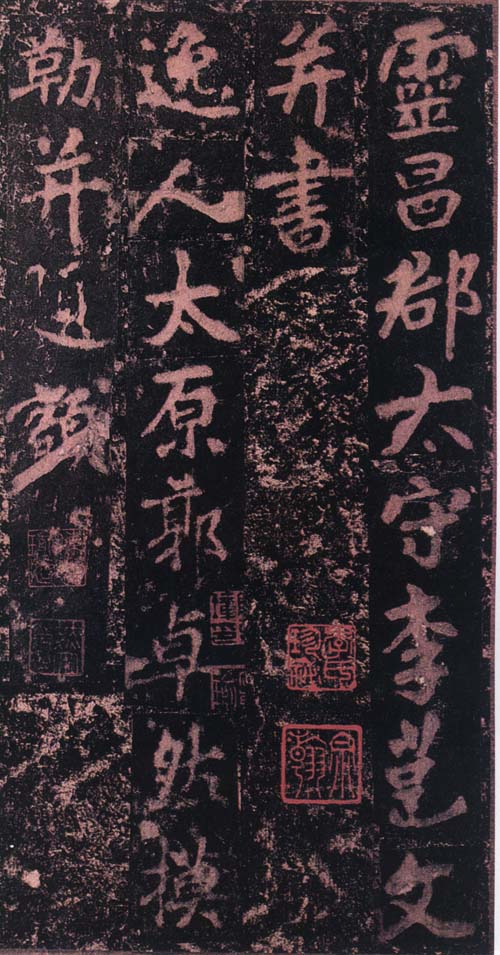 靈昌郡太守李邕文
并書
逸人太原郭卓然摸
勒并題額